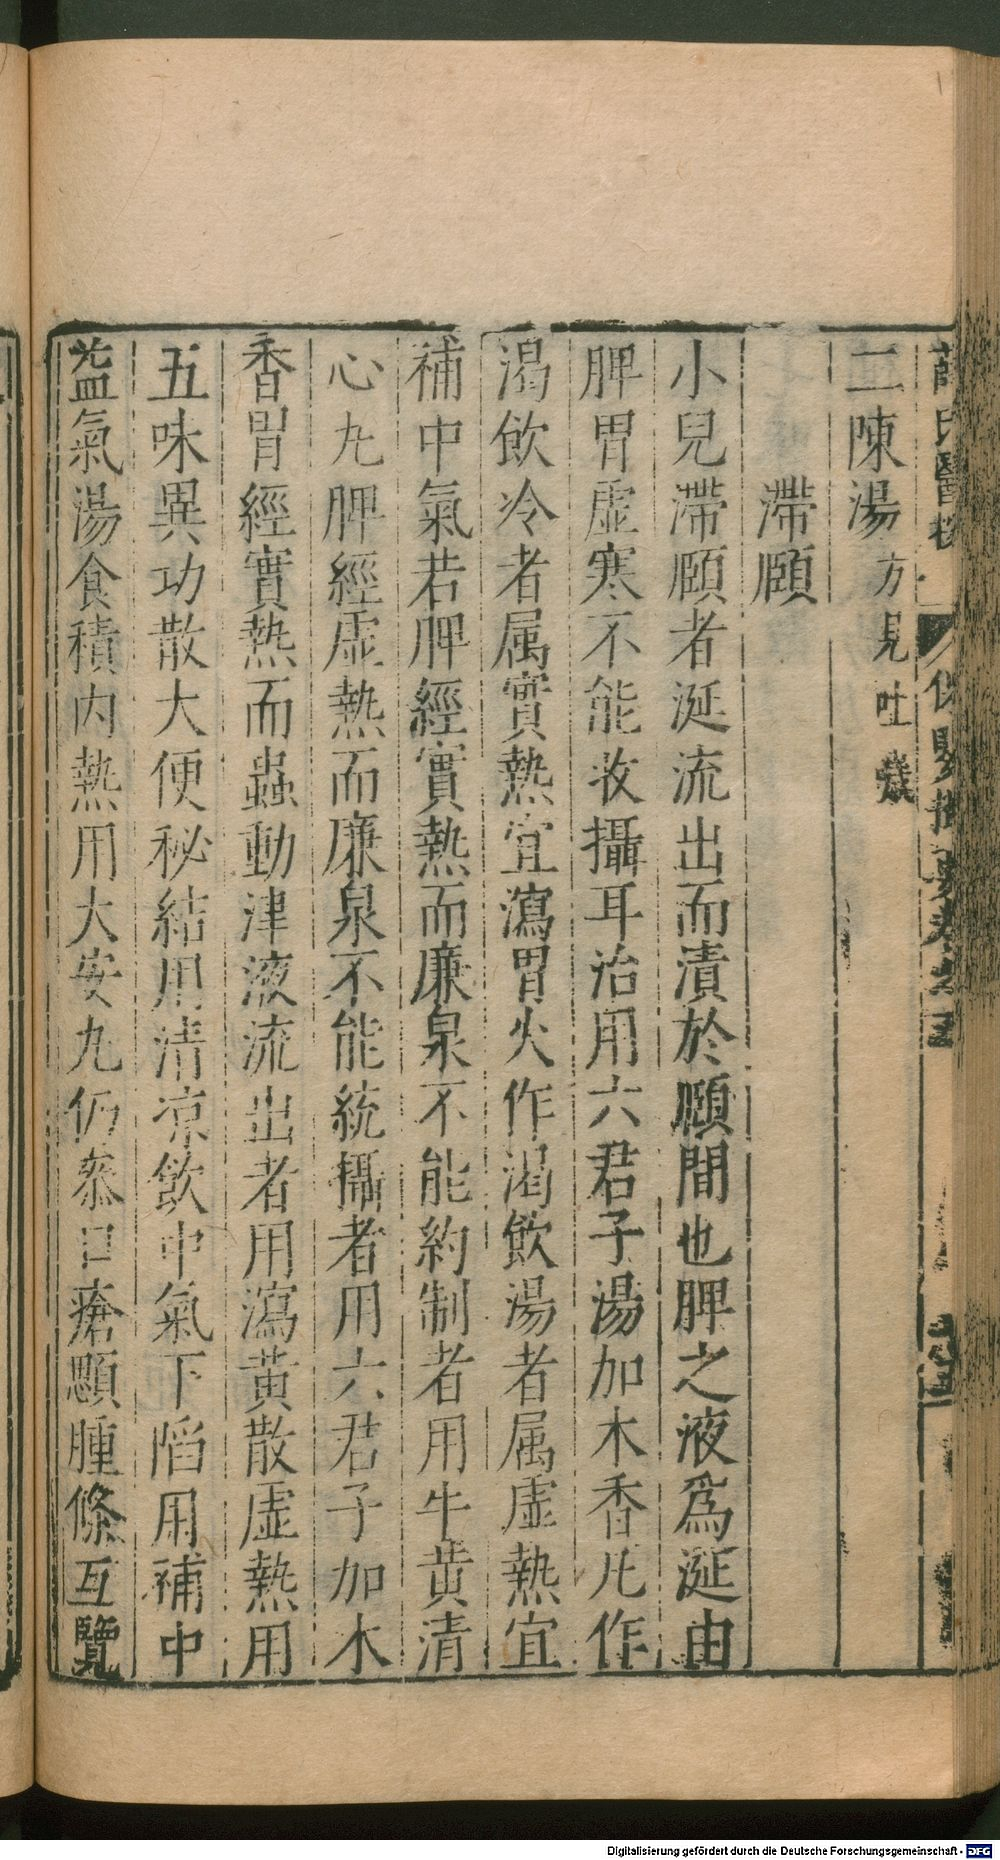 薛氏醫按 保嬰撮要卷之五
二陳湯方見吐舌
滯頤
小兒滯頤者涎流出而漬於頤間也脾之液爲涎由
脾胃虛寒不能收攝耳治用六君子湯加木香凡作
渴飲冷者属實熱宜瀉胃火作渴飲湯者属虛熱宜
補中氣若脾經實熱而廉泉不能約制者用牛黄清
心丸脾經虛熱而廉泉不能統攝者用六君子加木
香胃經實熱而蟲動津液流出者用瀉黄散虛熱用
五味異功散大便秘結用清凉飲中氣下陷用補中
益氣湯食積内熱用大安丸仍叅口瘡顋腫條互覽
Digitalisierung gefördert durch die Deutsche Forschungsgemeinschaft - DFG